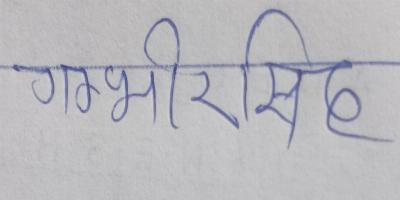 गम्भीरसिह